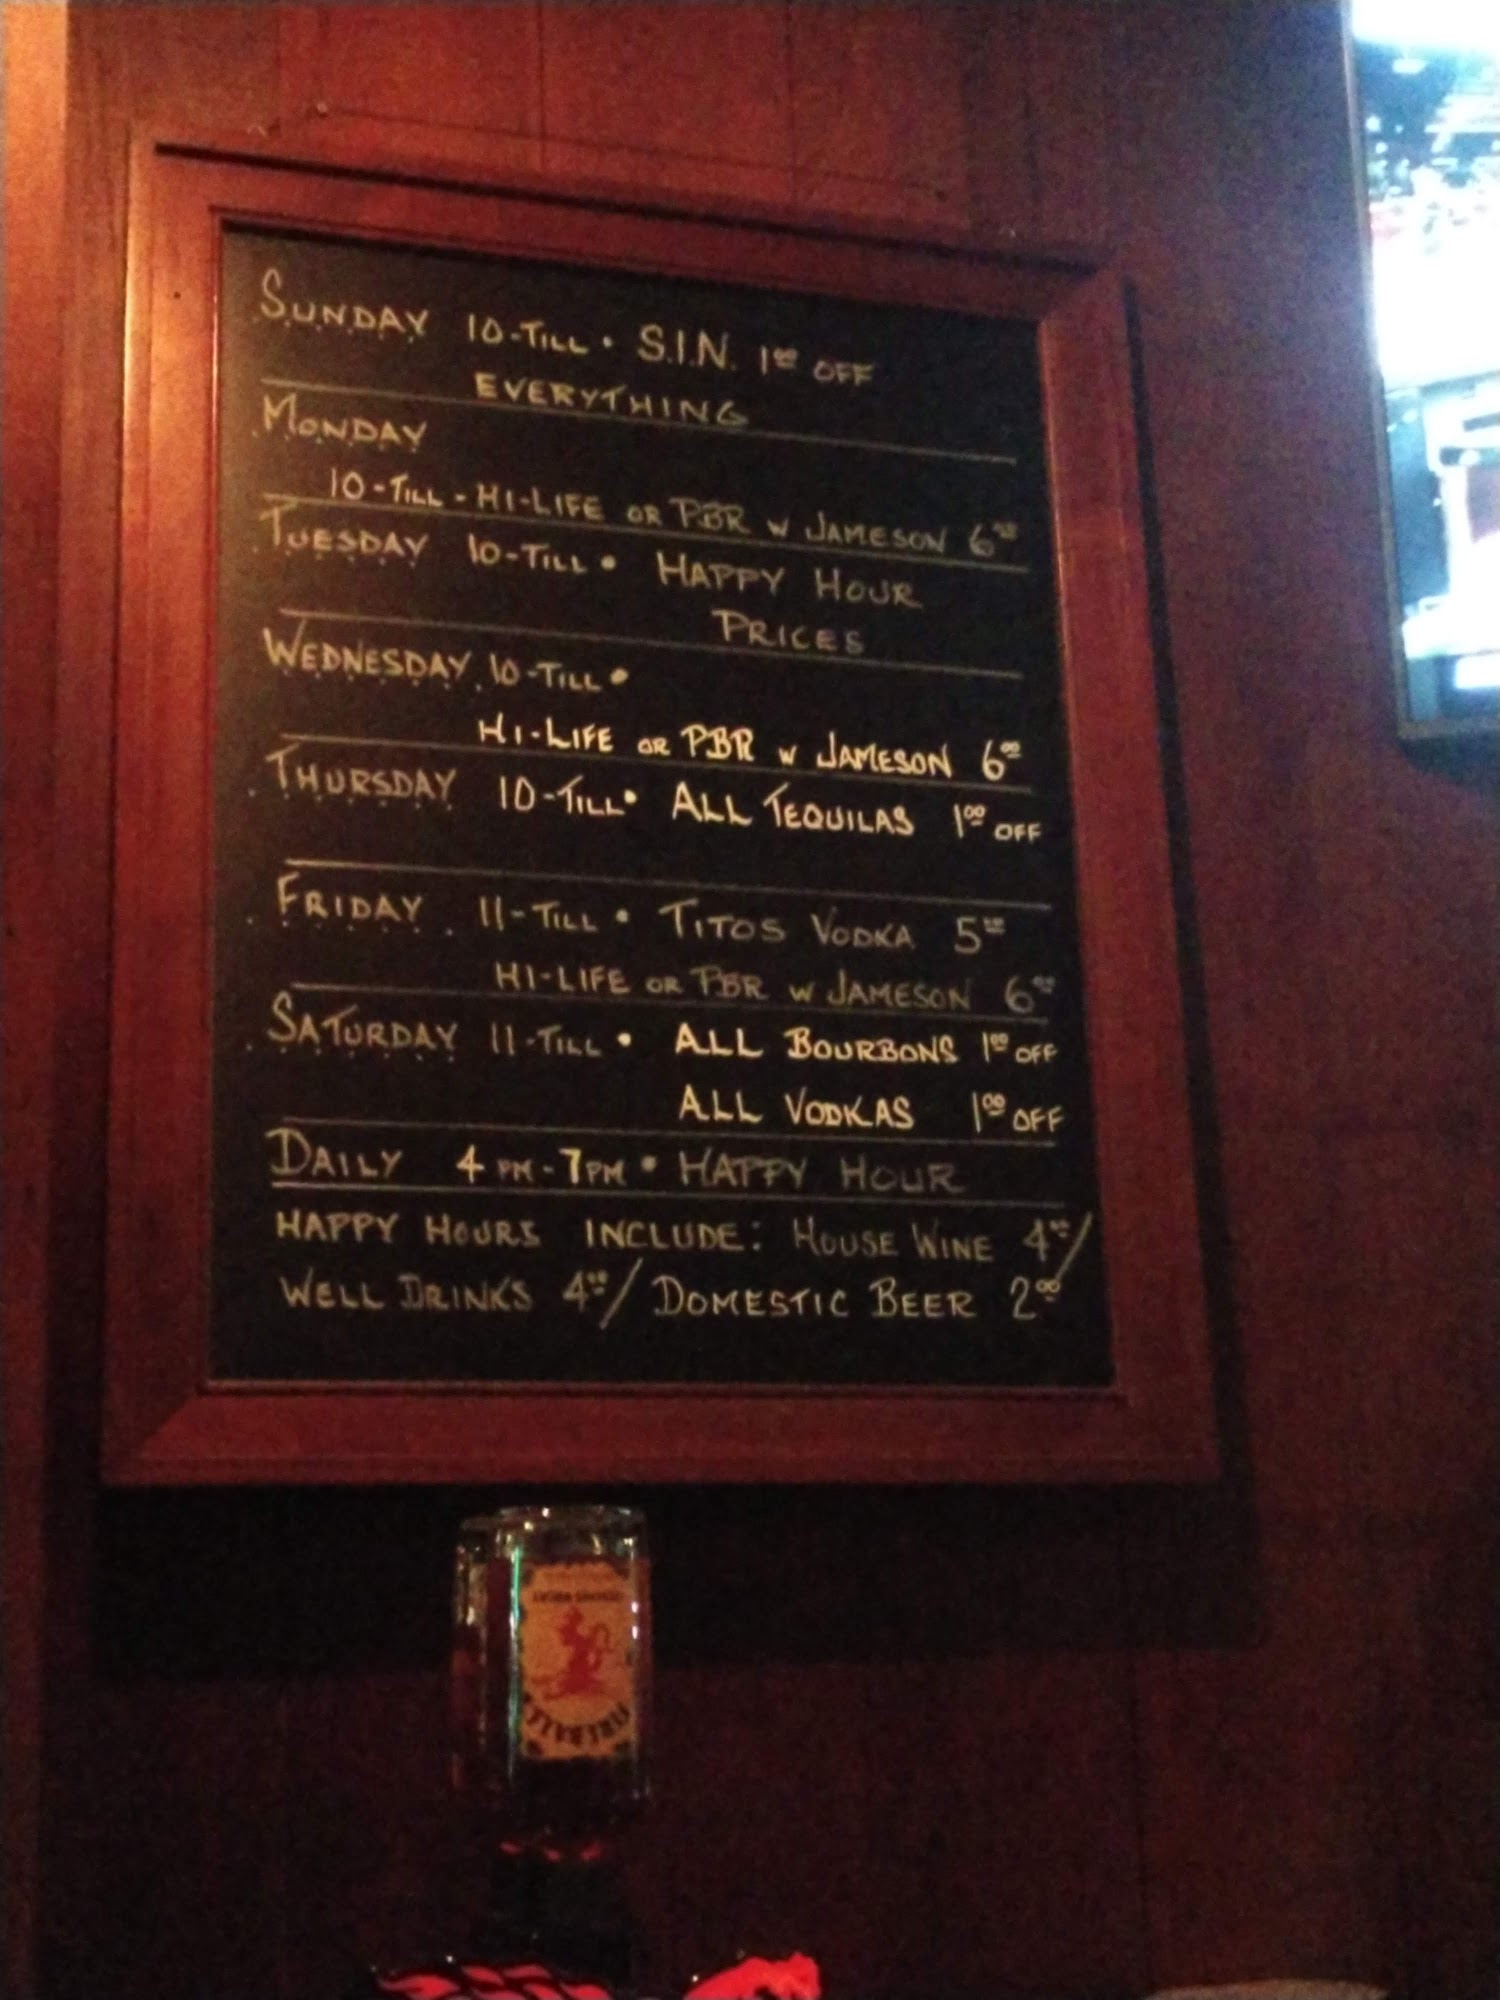 SUNDAY 10-TILL • S.I.N. 1⁰⁰ OFF
EVERYTHING
MONDAY
10-TILL - HI-LIFE OR PBR W JAMESON 6⁰⁰
TUESDAY 10-TILL • HAPPY HOUR
PRICES
WEDNESDAY 10-TILL •
HI-LIFE OR PBR W JAMESON 6⁰⁰
THURSDAY 10-TILL • ALL TEQUILAS 1⁰⁰ OFF
FRIDAY 11-TILL • TITOS VODKA 5⁰⁰
HI-LIFE OR PBR W JAMESON 6⁰⁰
SATURDAY 11-TILL • ALL BOURBONS 1⁰⁰ OFF
ALL VODKAS 1⁰⁰ OFF
DAILY 4 PM-7PM • HAPPY HOUR
HAPPY HOURS INCLUDE: HOUSE WINE 4⁰⁰/
WELL DRINKS 4⁰⁰/DOMESTIC BEER 2⁰⁰
FIREBALL